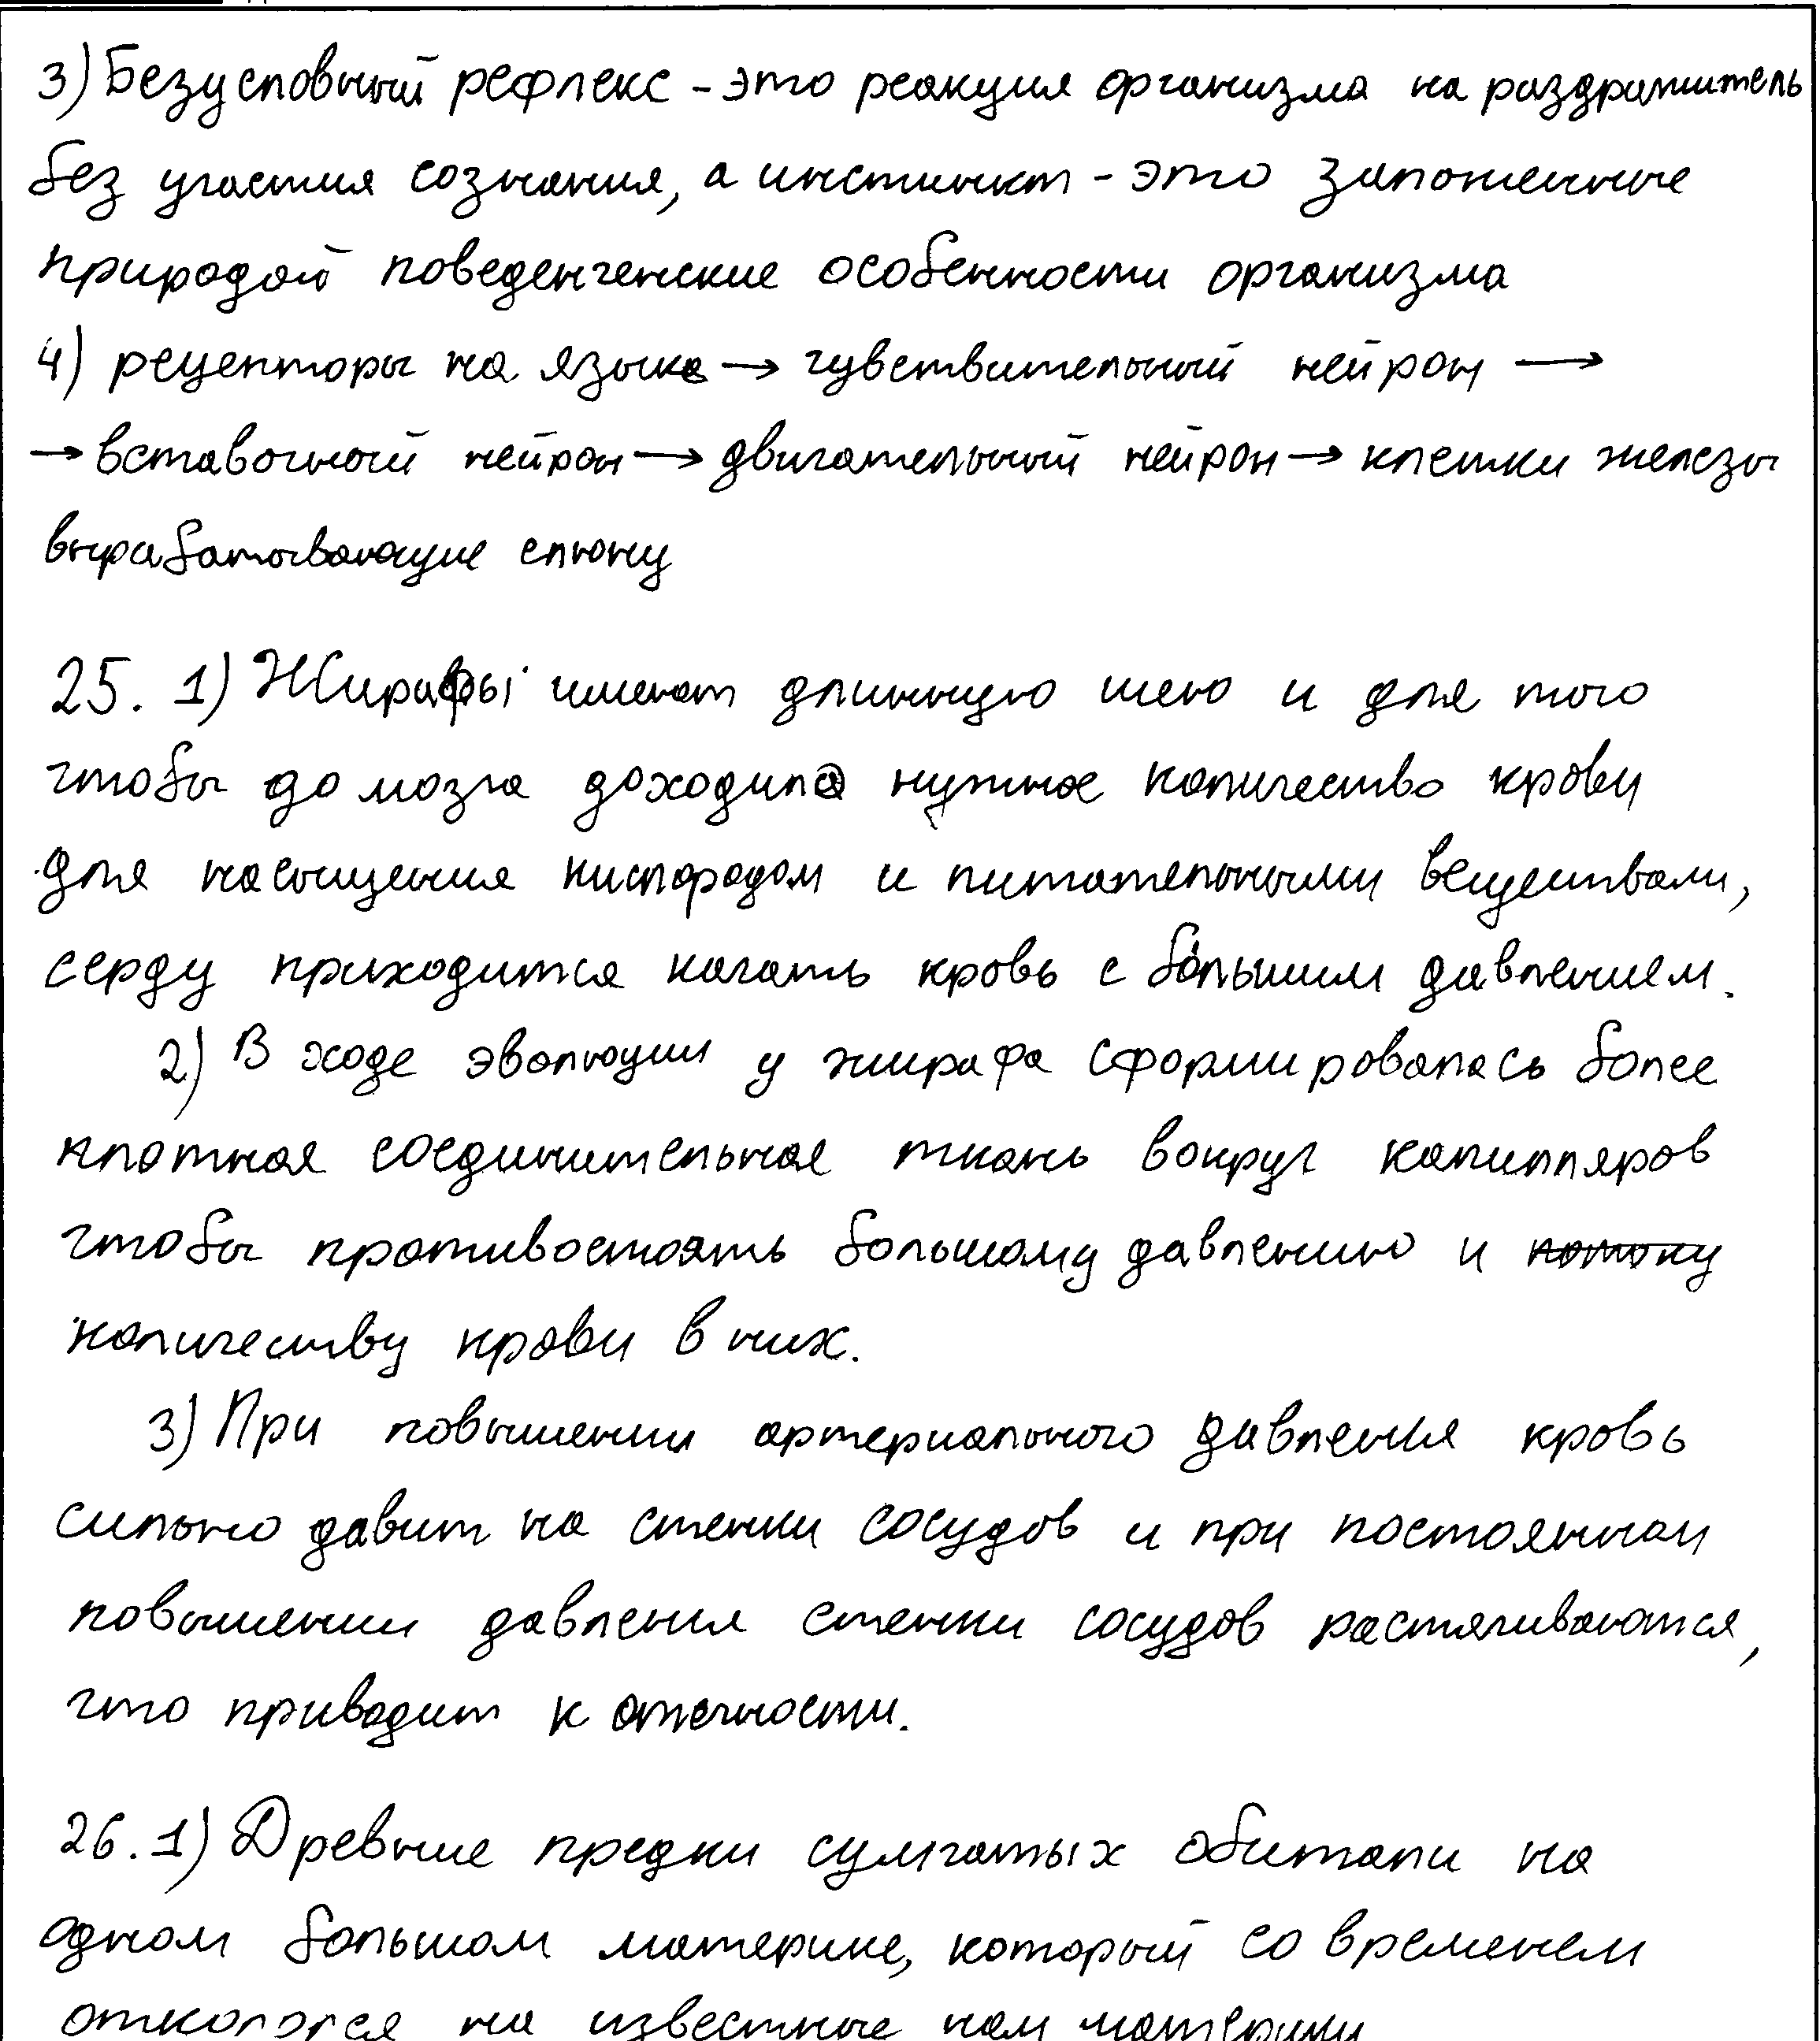 3) Безусловный рефлекс - это реакция организма на раздражитель
без участия сознания, а инстинкт - это заложенные
природой поведенченские особенности организма
4) рецепторы на языке → чувствительный нейрон →
→ вставочный нейрон → двигательный нейрон → клетки железы
вырабатывающие слюну
25. 1) Жирафы имеют длинную шею и для того
чтобы до мозга доходило нужное количество крови
для насыщения кислородом и питательными веществами,
серду приходится качать кровь с бóльшим давлением.
2) В ходе эволюции у жирафа сформировалась более
плотная соединительная ткань вокруг капилляров
чтобы противостоять большому давлению и потоку
количеству крови в них.
3) При повышении артериального давления кровь
сильно давит на стенки сосудов и при постоянном
повышении давления стенки сосудов растягиваются,
что приводит к отечности.
26. 1) Древние предки сумчатых обитали на
одном большом материке, который со временем
откололся на известные нам материки